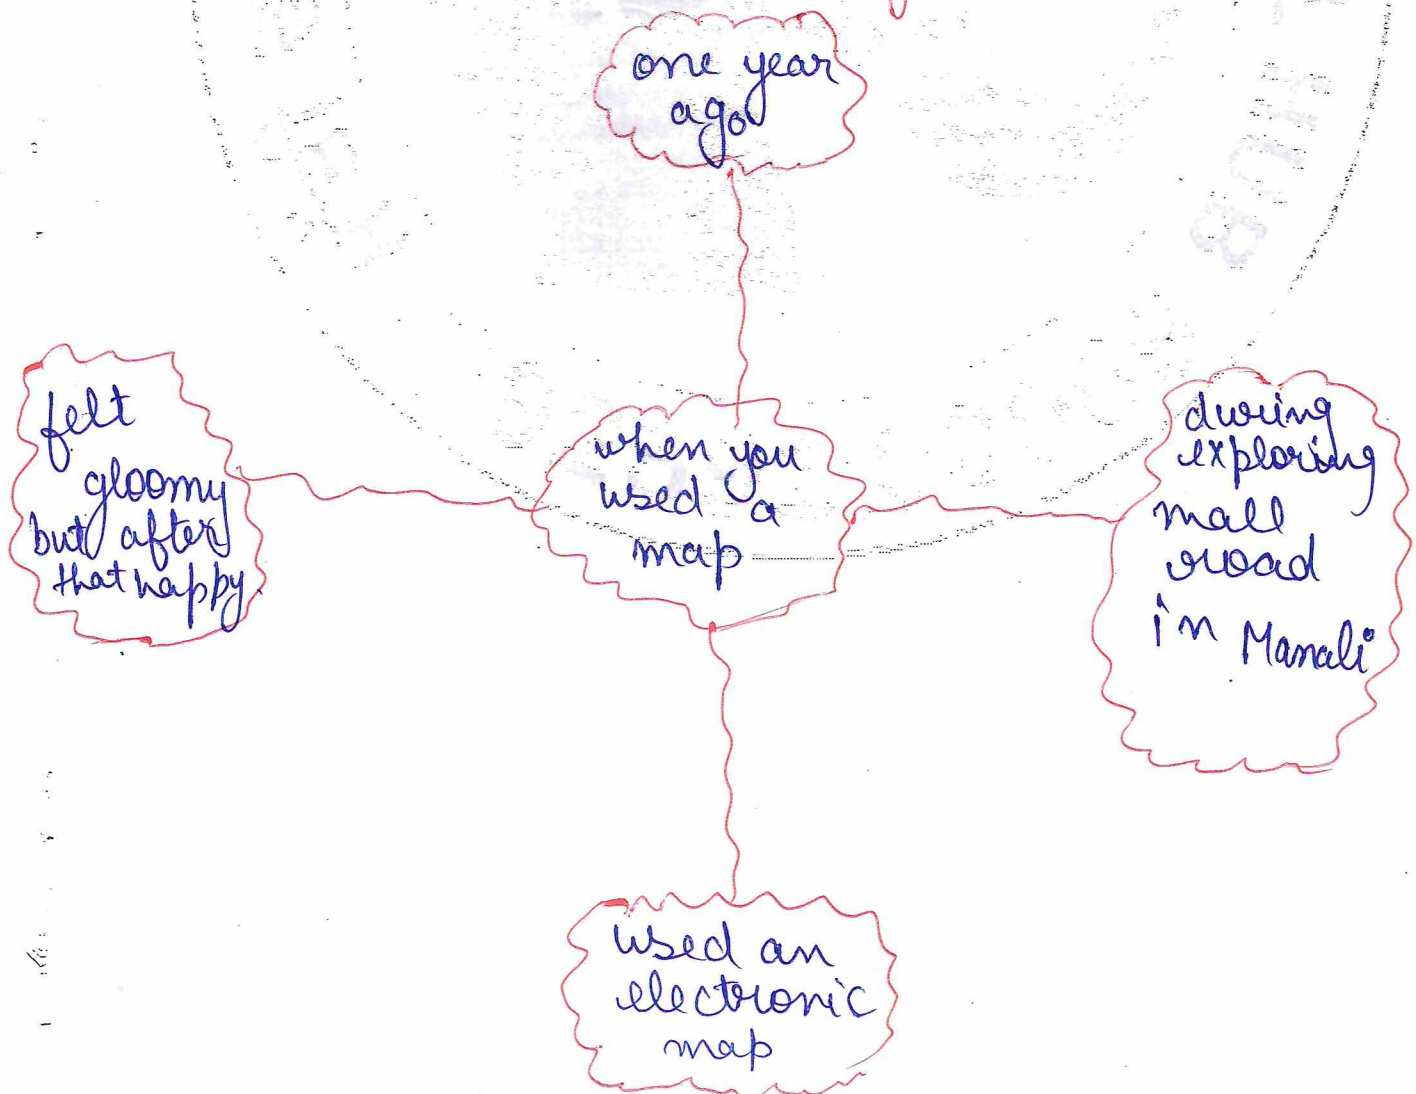 one year
ago
felt
gloomy
but after
that happy
when you
used a
map
during
exploring
mall
road
in Manali
used an
electronic
map